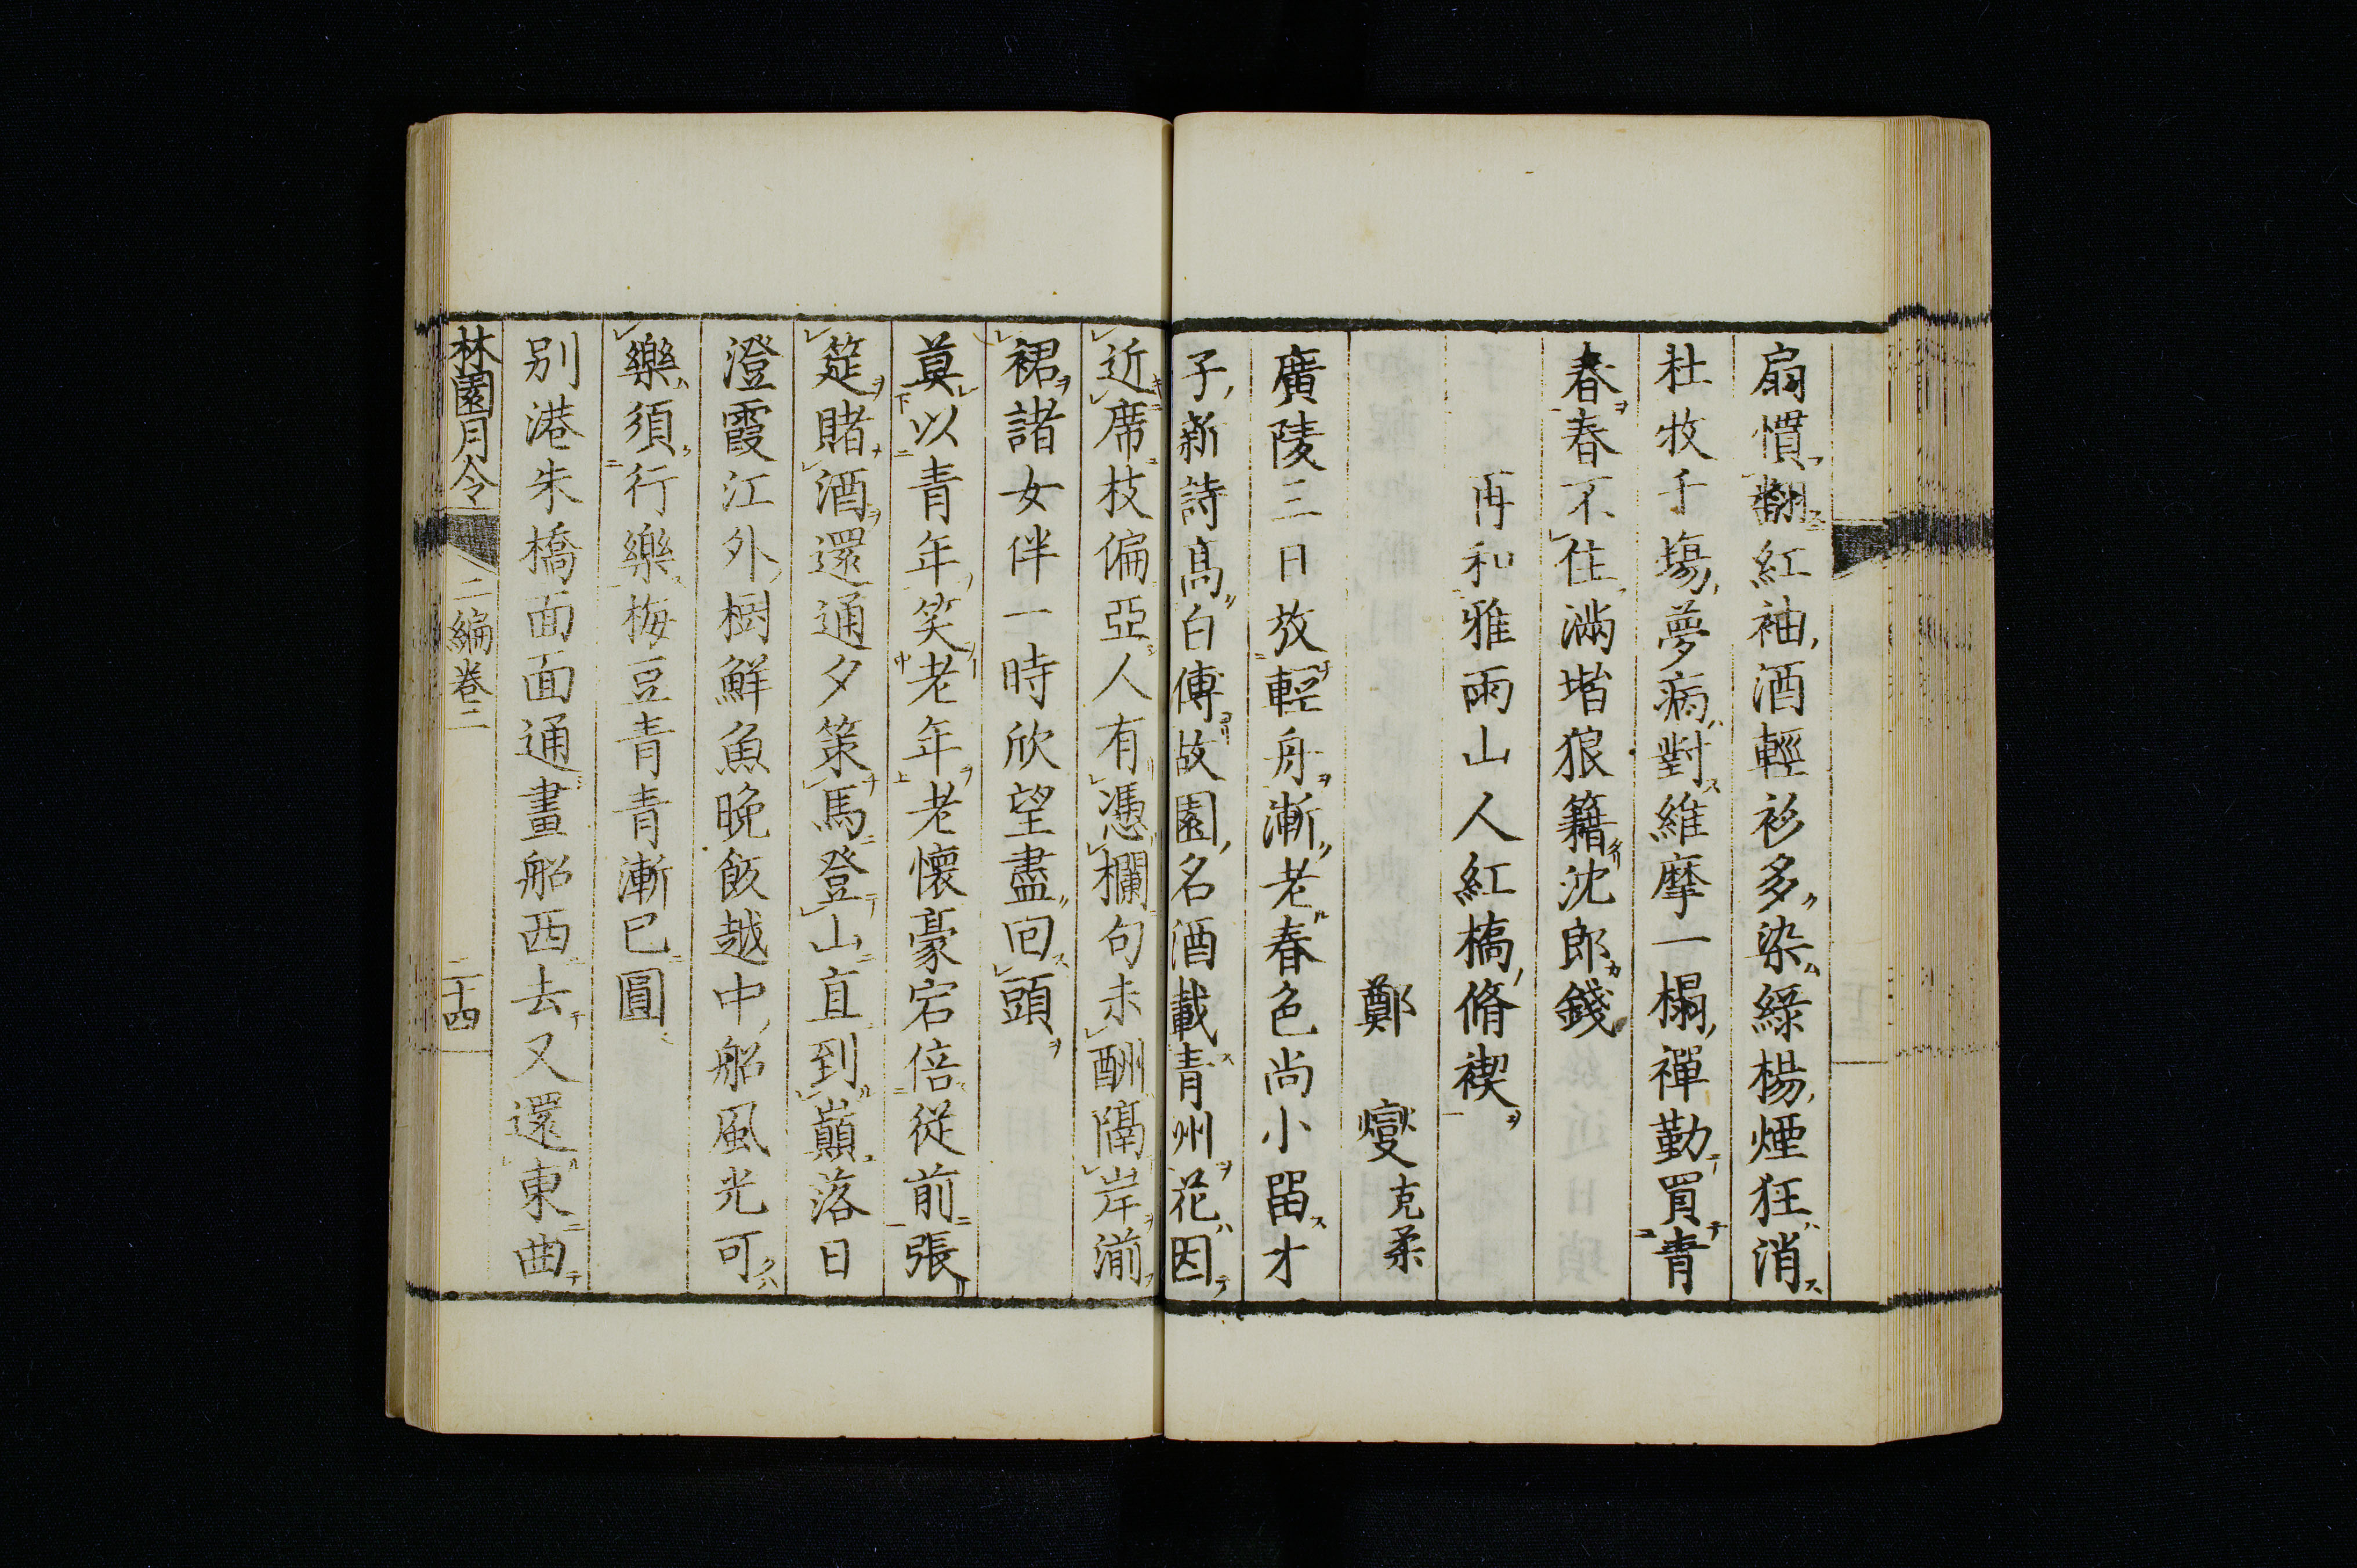 扇慣翻紅袖酒輕衫多染綠楊煙狂消
杜牧千塲夢病對維摩一榻禪勤買青
春春不住滿堦狼籍沈郎錢
再和雅雨山人紅橋脩禊
鄭燮克柔
廣陵三日放輕舟漸老春色尚小留才
子新詩高白傅故園名酒載青州花因
近席枝偏亞人有憑欄句未酬隔岸湔
裙諸女伴一時欣望盡回頭
莫以青年笑老年老懷豪宕倍從前張
筵賭酒還通夕策馬登山直到巔落日
澄霞江外樹鮮魚晚飯越中船風光可
樂須行樂梅豆青青漸巳圓
別港朱橋面面通畫船西去又還東曲
林園月令 二編卷二 二十四